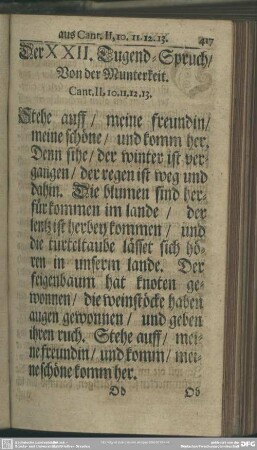 aus Cant. II, 10. 11. 12. 13. 417
Der XXII. Tugend-Spruch/
Von der Munterkeit.
Cant. II, 10. 11. 12. 13.
Stehe auff/ meine freundin/
meine schöne/ und komm her.
Denn sihe/ der winter ist ver-
gangen/ der regen ist weg und
dahin. Die blumen sind her-
für kommen im lande/ der
lentz ist herbey kommen/ und
die turteltaube lässet sich hö-
ren in unserm lande. Der
feigenbaum hat knoten ge-
wonnen/ die weinstöcke haben
augen gewonnen/ und geben
ihren ruch. Stehe auff/ mei-
ne freundin/ und komm/ mei-
ne schöne komm her.
Dd Ob
DFG